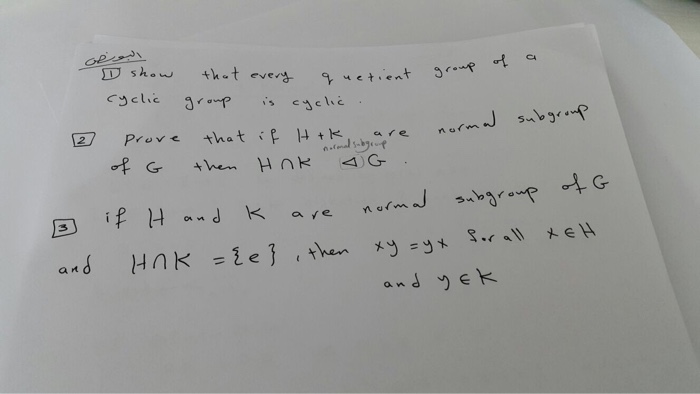 1 show that every quetient group of a
cyclic group is cyclic.
2 Prove that if H + K, are normal subgroup
normal subgroup
of G then H ∩ K ⊲ G.
3 if H and K are normal subgroup of G
and H∩K = {e}, then xy = yx for all x ∈ H
and y ∈ K